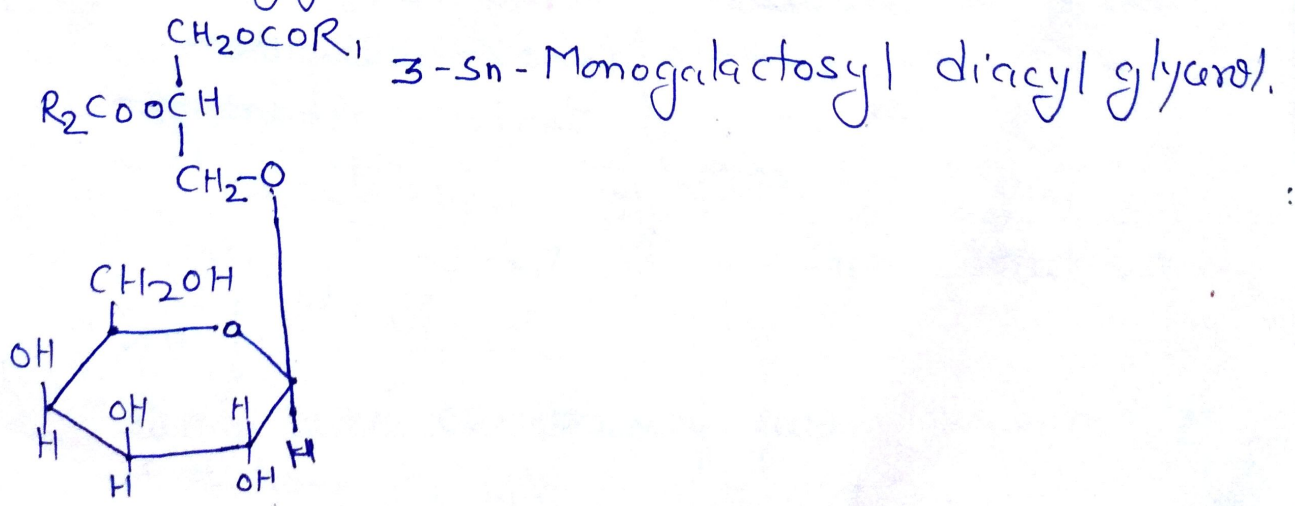 CH2OCOR1
3-Sn-Monogalactosyl diacyl glycerol.
R2COOCH
CH2-O
CH2OH
O
OH
OH H
H H
H OH